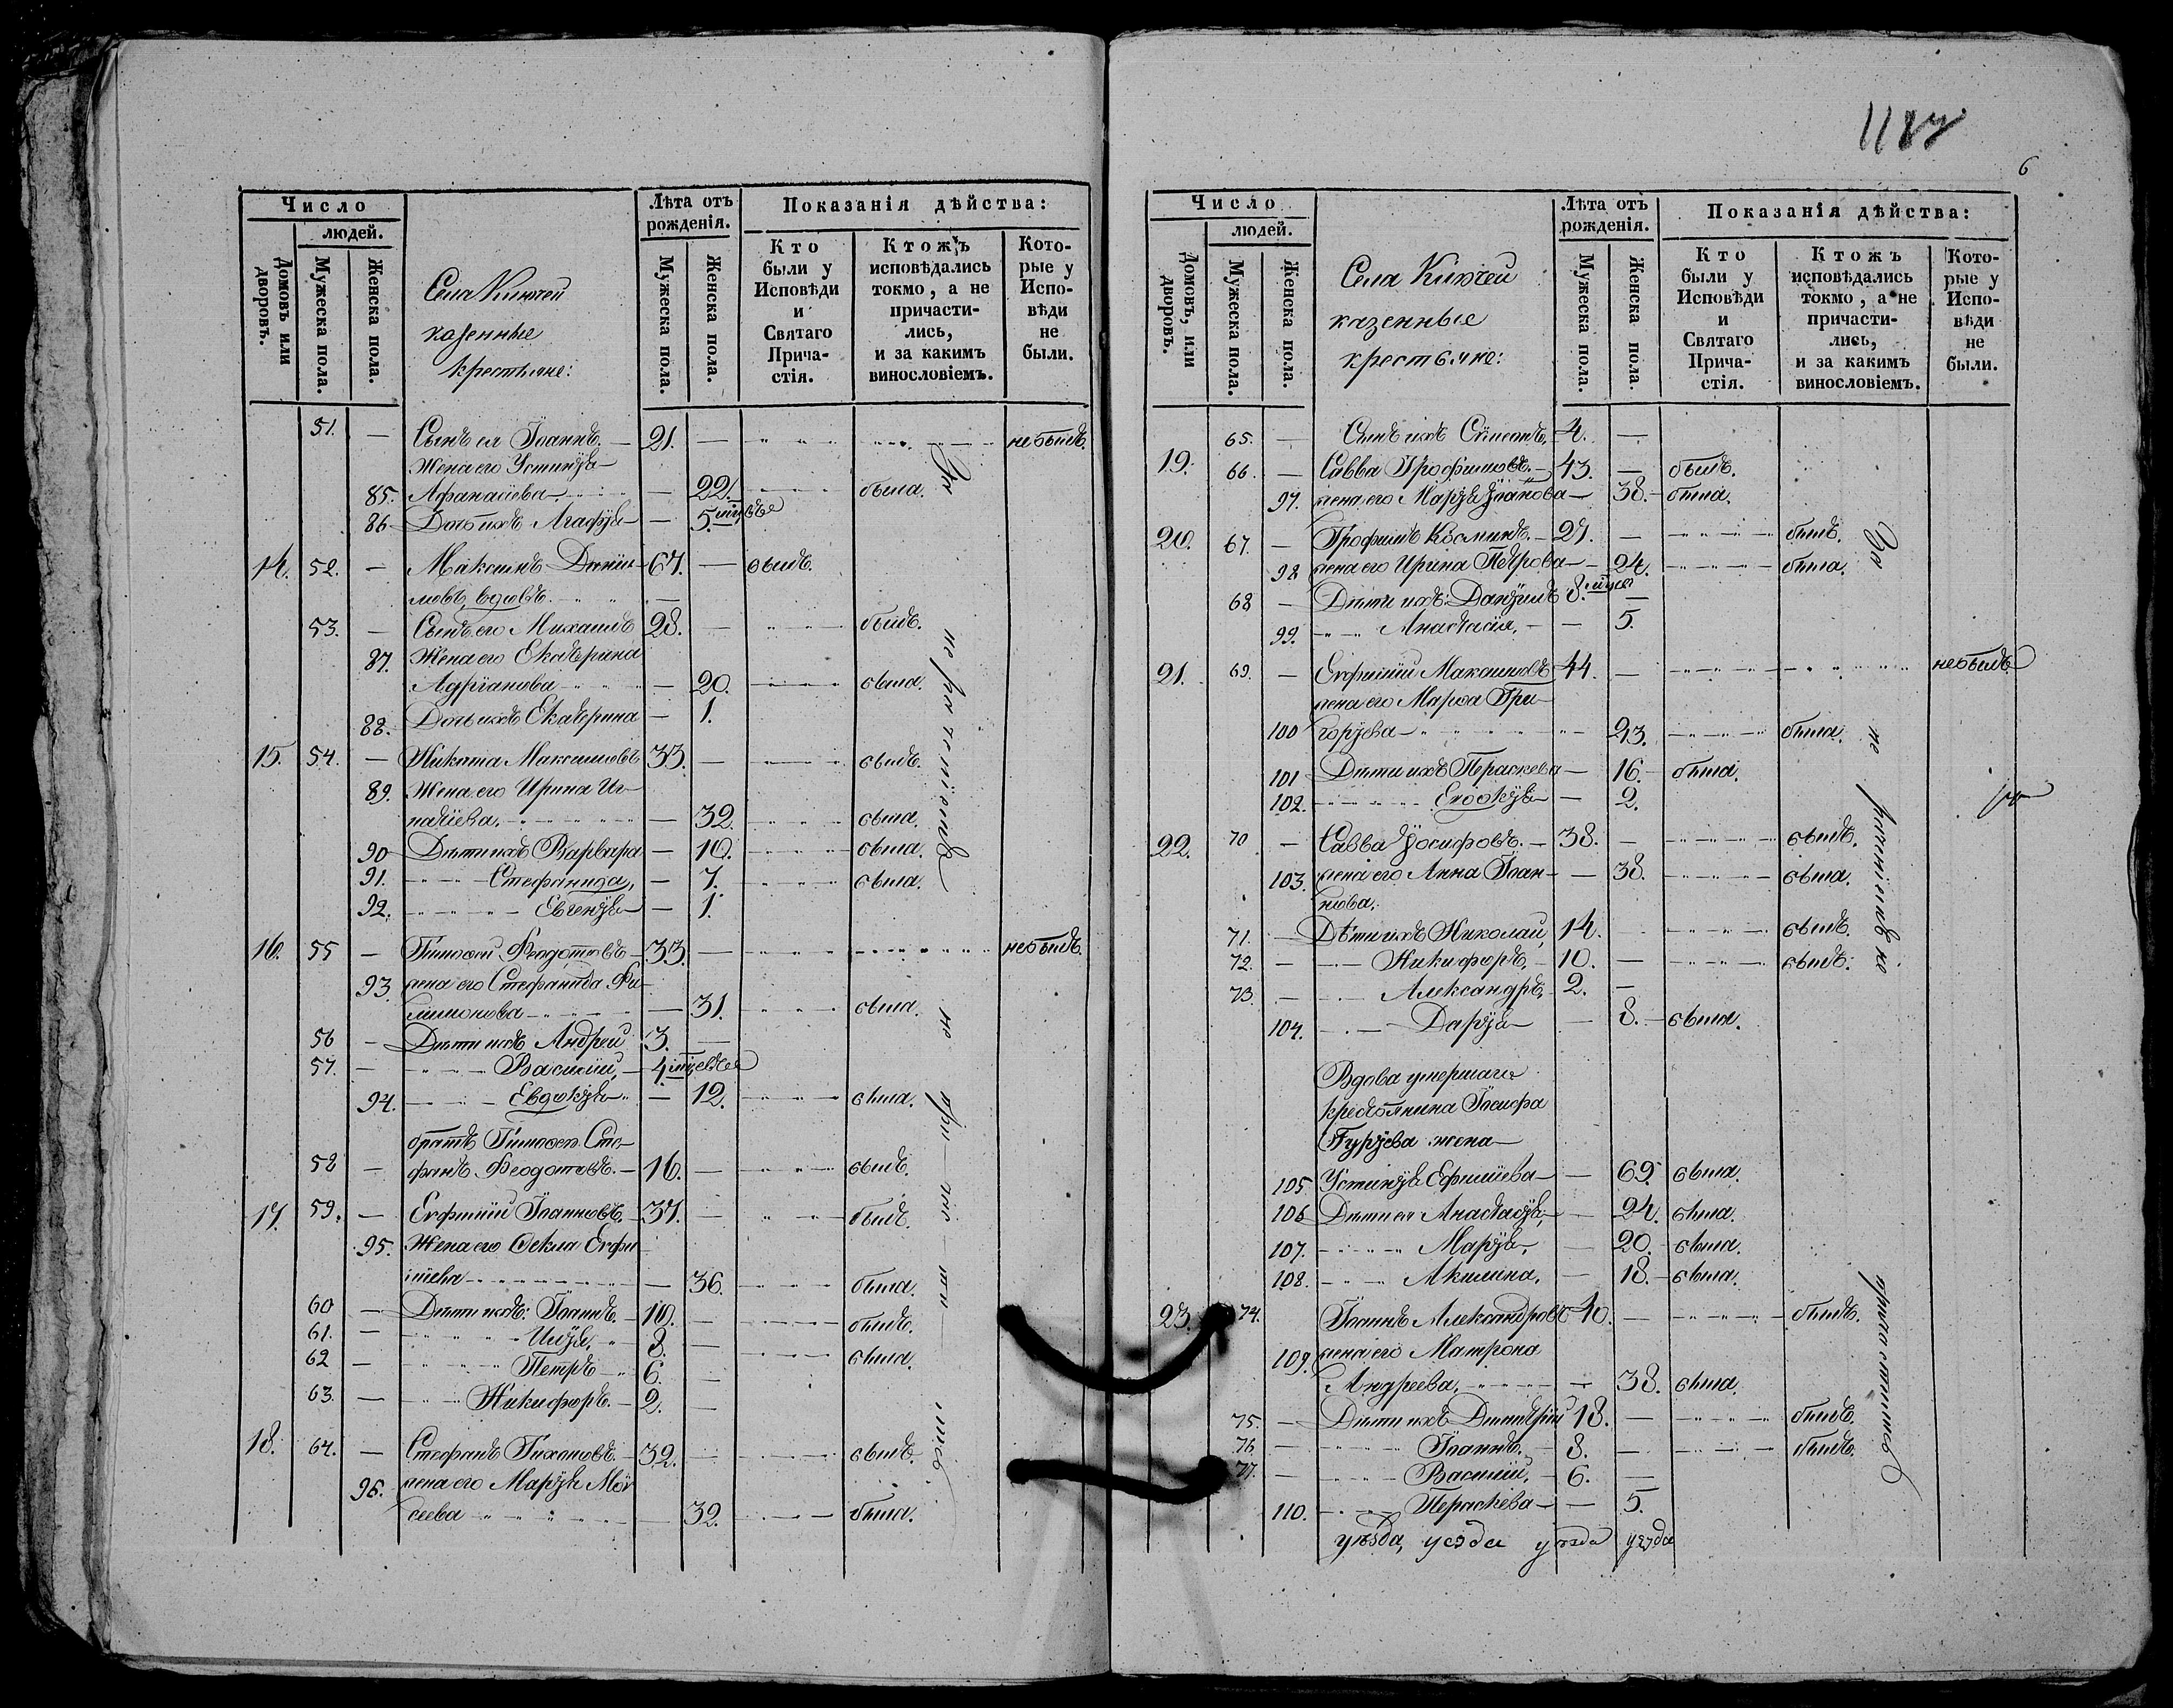 Число
людей.
Домовъ или дворовъ.
Мужеска пола.
Женска пола.
Села Ключей
казенные
крестьяне:
Лѣта отъ рожденія.
Мужеска пола.
Женска пола.
Показанія дѣйства:
Кто были у Исповѣди и Святаго Прича-стія.
Ктожъ исповѣдались токмо, а не причасти-лись, и за какимъ винословіемъ.
Кото-рые у Испо-вѣди не были.
51. — Сынъ ея Іоаннъ. — 21. — небылъ.
Жена его Устинія
85. Афанасіева — 22. была.
86 Дочь ихъ Агафія — 5.
14. 52. — Максимъ Дании- 67. — былъ.
ловъ, вдовъ.
53. — Сынъ его Михаилъ 28. — былъ.
87. Жена его Екатерина
Адріанова — 20. была.
88. Дочь ихъ Екатерина — 1.
15. 54. — Никита Максимовъ 33. — былъ.
89. Жена его Ирина Иг-
натіева. — 32. была.
90 Дѣти ихъ Варвара — 10. была.
91. Стефанида, — 7. была.
92. Евгенія — 1.
16. 55 — Тимофей Феодотовъ — 33. — небылъ.
93 жена его Стефанида Фи-
лимонова — 31. была.
56 — Дѣти ихъ Андрей 3. —
57. — Василий, — 4
94. Евдокія — 12. была.
братъ Тимофея Сте-
58 — фанъ Феодотовъ. — 16. — былъ.
17. 59. — Евфимій Іоанновъ. 37. — былъ.
95. Жена его Фекла Евфи-
міева — 36. была.
60 — Дѣти ихъ: Іоаннъ — 10. — былъ.
61. — Илія, 8. — была.
62 — Петръ — 6. —
63. — Никифоръ. — 2. —
18. 64. — Стефанъ Тихоновъ. 32. — былъ.
96. жена его Марія Мои-
сеева — 32. была.
За
не
не
при
6
Число
людей.
Домовъ, или дворовъ.
Мужеска пола.
Женска пола.
Села Ключей
казенные
крестьяне:
Лѣта отъ рожденія.
Мужеска пола.
Женска пола.
Показанія дѣйства:
Кто были у Исповѣди и Святаго Прича-стія.
Ктожъ исповѣдались токмо, а не причасти-лись, и за какимъ винословіемъ.
Кото-рые у Испо-вѣди не были.
65. — Сынъ ихъ 4. —
19. 66. — Савва Трофимовъ. — 43. — былъ.
97. жена его Марія — 38. — была.
20. 67. — Трофимъ Косминъ. — 27. — былъ.
98 жена его Ирина Петрова — 24. была.
68 — Дѣти ихъ: Даніилъ 8. —
99. Анастасія, — 5.
21. 69. — Евфимій Максимовъ 44. — небылъ
жена его Марфа Гри-
100 горіева — 43. была.
101 Дѣти ихъ Параскева — 16. — была.
102. Евдокія — 2.
22. 70 — Савва Іосифовъ. — 38. — былъ.
103. жена его Анна Іоан- — 38. была.
нова.
71. — Дѣти ихъ Николай, 14. — былъ.
72. — Никифоръ, — 10. — былъ.
73. — Александръ, 2. —
104. Дарія — 8. — была.
Вдова умершаго
крестьянина Іосифа
Гурьева жена
105 Устинія Ефимiева — 69. была.
106 Дѣти ея Анастасія, — 24. была.
107. Марія, — 20. — была.
108. Акилина, — 18. — была.
23. 74. Іоаннъ Александровъ 40. — былъ.
109. жена его Матрона
Андреева, — 38. была.
75. — Дѣти ихъ Димитрій 18. — былъ.
76. — Іоаннъ. — 8. — былъ.
77. — Василій, — 6. —
110. Параскева — 5.
уѣзда, уезда уѣзда уезда
За
не
раченіемъ не
причастились